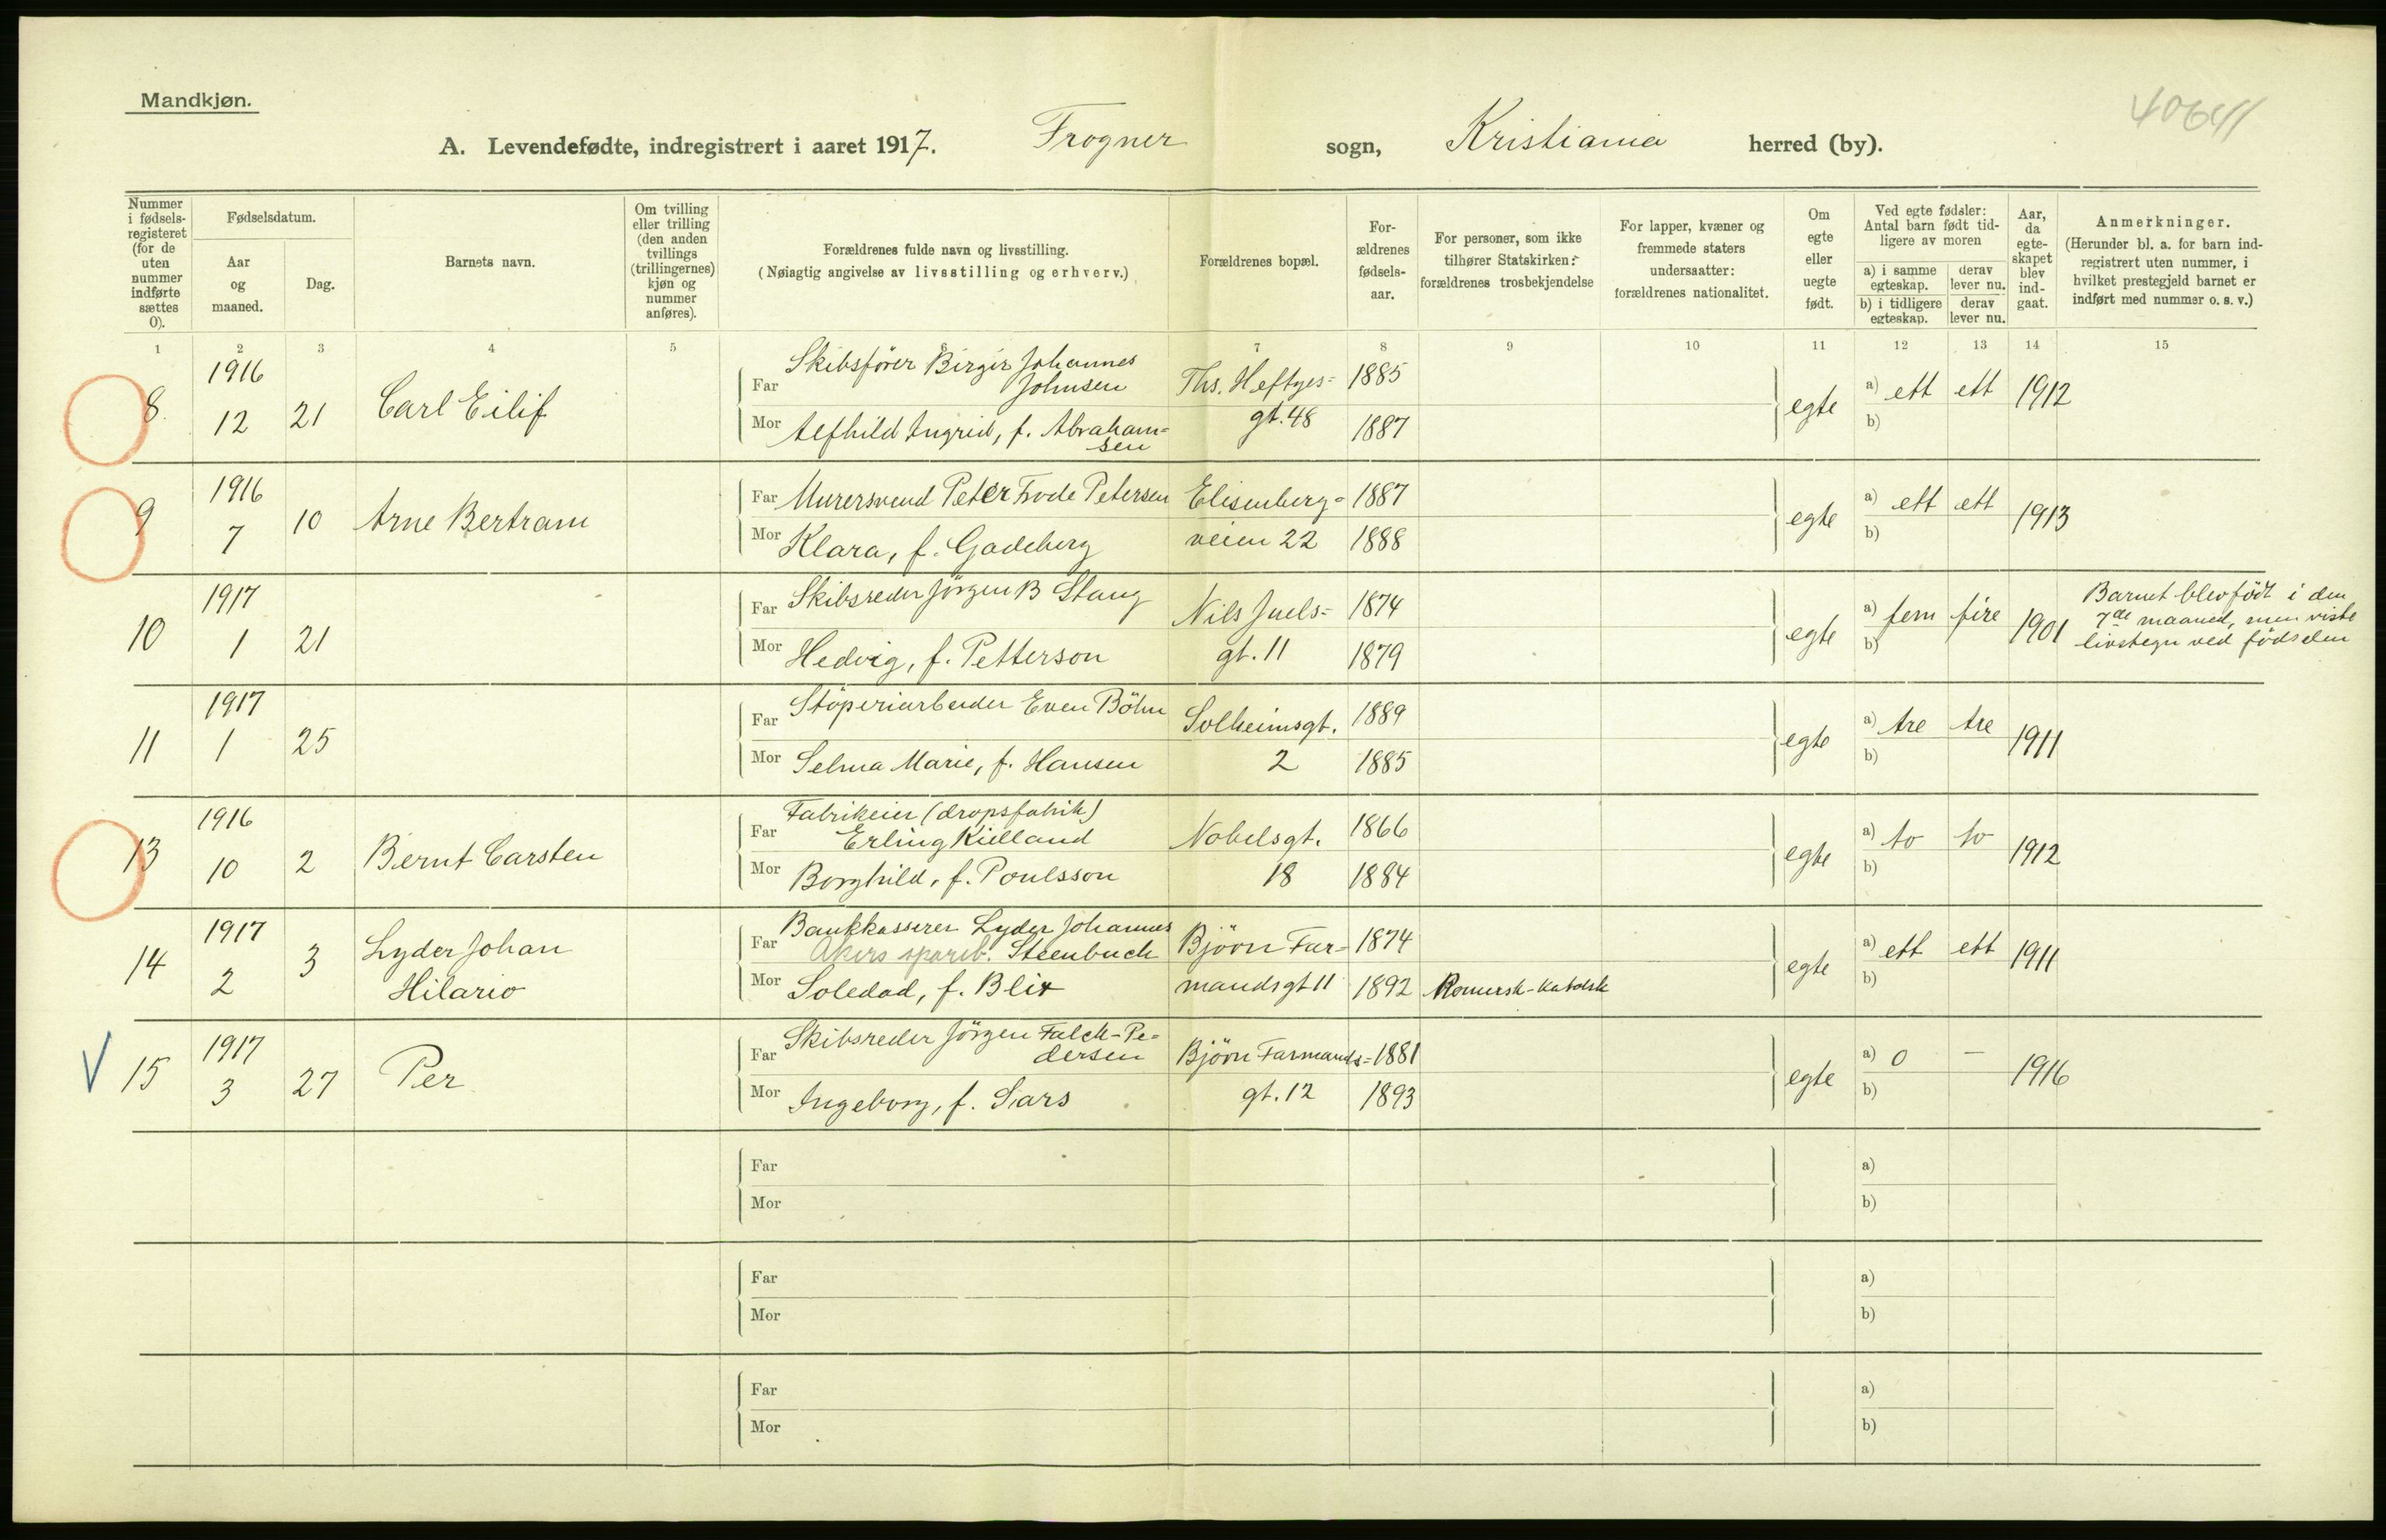 Mandkjøn.
40641
A. Levendefødte, indregistrert i aaret 1917. Frogner sogn, Kristiania herred (by).
Nummer i fødselsregisteret (for de uten nummer indførte sættes 0).
Fødselsdatum.
Aar og maaned.
Dag.
Barnets navn.
Om tvilling eller trilling (den anden tvillings (trillingernes) kjøn og nummer anføres).
Forældrenes fulde navn og livsstilling.
(Nøiagtig angivelse av livsstilling og erhverv.)
Forældrenes bopæl.
Forældrenes fødselsaar.
For personer, som ikke tilhører Statskirken: forældrenes trosbekjendelse
For lapper, kvæner og fremmede staters undersaatter: forældrenes nationalitet.
Om egte eller uegte født.
Ved egte fødsler: Antal barn født tidligere av moren
a) i samme egteskap. derav lever nu.
b) i tidligere egteskap. derav lever nu.
Aar, da egteskapet blev indgaat.
Anmerkninger.
(Herunder bl. a. for barn indregistrert uten nummer, i hvilket prestegjeld barnet er indført med nummer o. s. v.)
1 2 3 4 5 6 7 8 9 10 11 12 13 14 15
8. 1916 12 21 Carl Eilif
Far Skibsfører Birger Johannes Johnsen Ths. Heftyes= 1885
Mor Alfhild Ingrid, f. Abraham=sen gt. 48 1887
egte a) ett ett 1912
b)
9 1916 7 10 Arne Bertram
Far Murersvend Peter Frode Petersen Elisenberg= 1887
Mor Klara, f. Gadeberg veien 22 1888
egte a) ett ett 1913
b)
10 1917 1 21
Far Skibsreder Jörgen B Stang Nils Juels= 1874
Mor Hedvig, f. Petterson gt. 11 1879
egte a) fem fire 1901
b)
Barnet blev födt i den
7de maaned, men viste
livstegn ved födselen
11 1917 1 25
Far Stöperiarbeider Even Böhn Solheimsgt. 1889
Mor Selma Marie, f. Hansen 2 1885
egte a) tre tre 1911
b)
13 1916 10 2 Bernt Carsten
Far Fabrikeier (dropsfabrik)
Erling Kielland Nobelsgt. 1866
Mor Borghild, f. Poulsson 18 1884
egte a) to to 1912
b)
14 1917 2 3 Lyder Johan
Hilario
Far Bankkasserer Lyder Johannes
Akers spareb. Steenbuch Björn Far= 1874
Mor Soledad, f. Blix mandsgt 11 1892 Romersk-katolsk
egte a) ett ett 1911
b)
V 15 1917 3 27 Per
Far Skibsreder Jörgen Falck-Pe=
dersen Björn Farmands= 1881
Mor Ingeborg, f. Sars gt. 12 1893
egte a) 0 — 1916
b)
Far a)
Mor b)
Far a)
Mor b)
Far a)
Mor b)